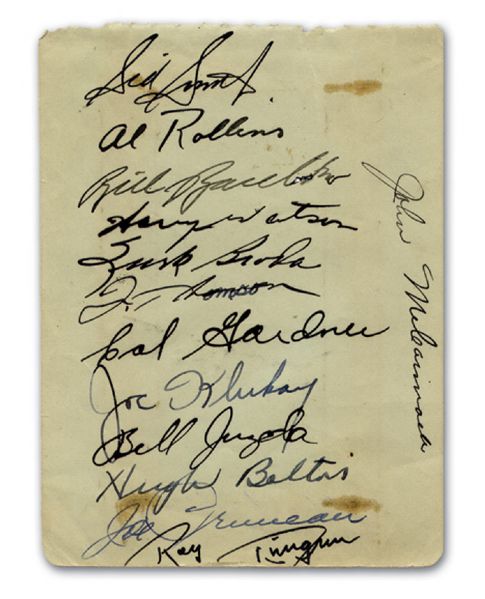 Sid Smith
Al Rollins
Bill Barilko
Harry Watson
Turk Broda
J. Thomson
Cal Gardner
Joe Klukay
Bill Juzda
Hugh Bolton
Joe
Ray Timgren
John McCormack